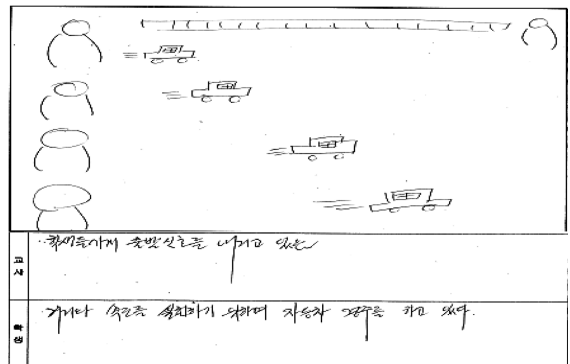 교사
학생들에게 출발신호를 내리고 있음
학생
거리와 속도를 실험하기 위하여 자동차 경주를 하고 있다.